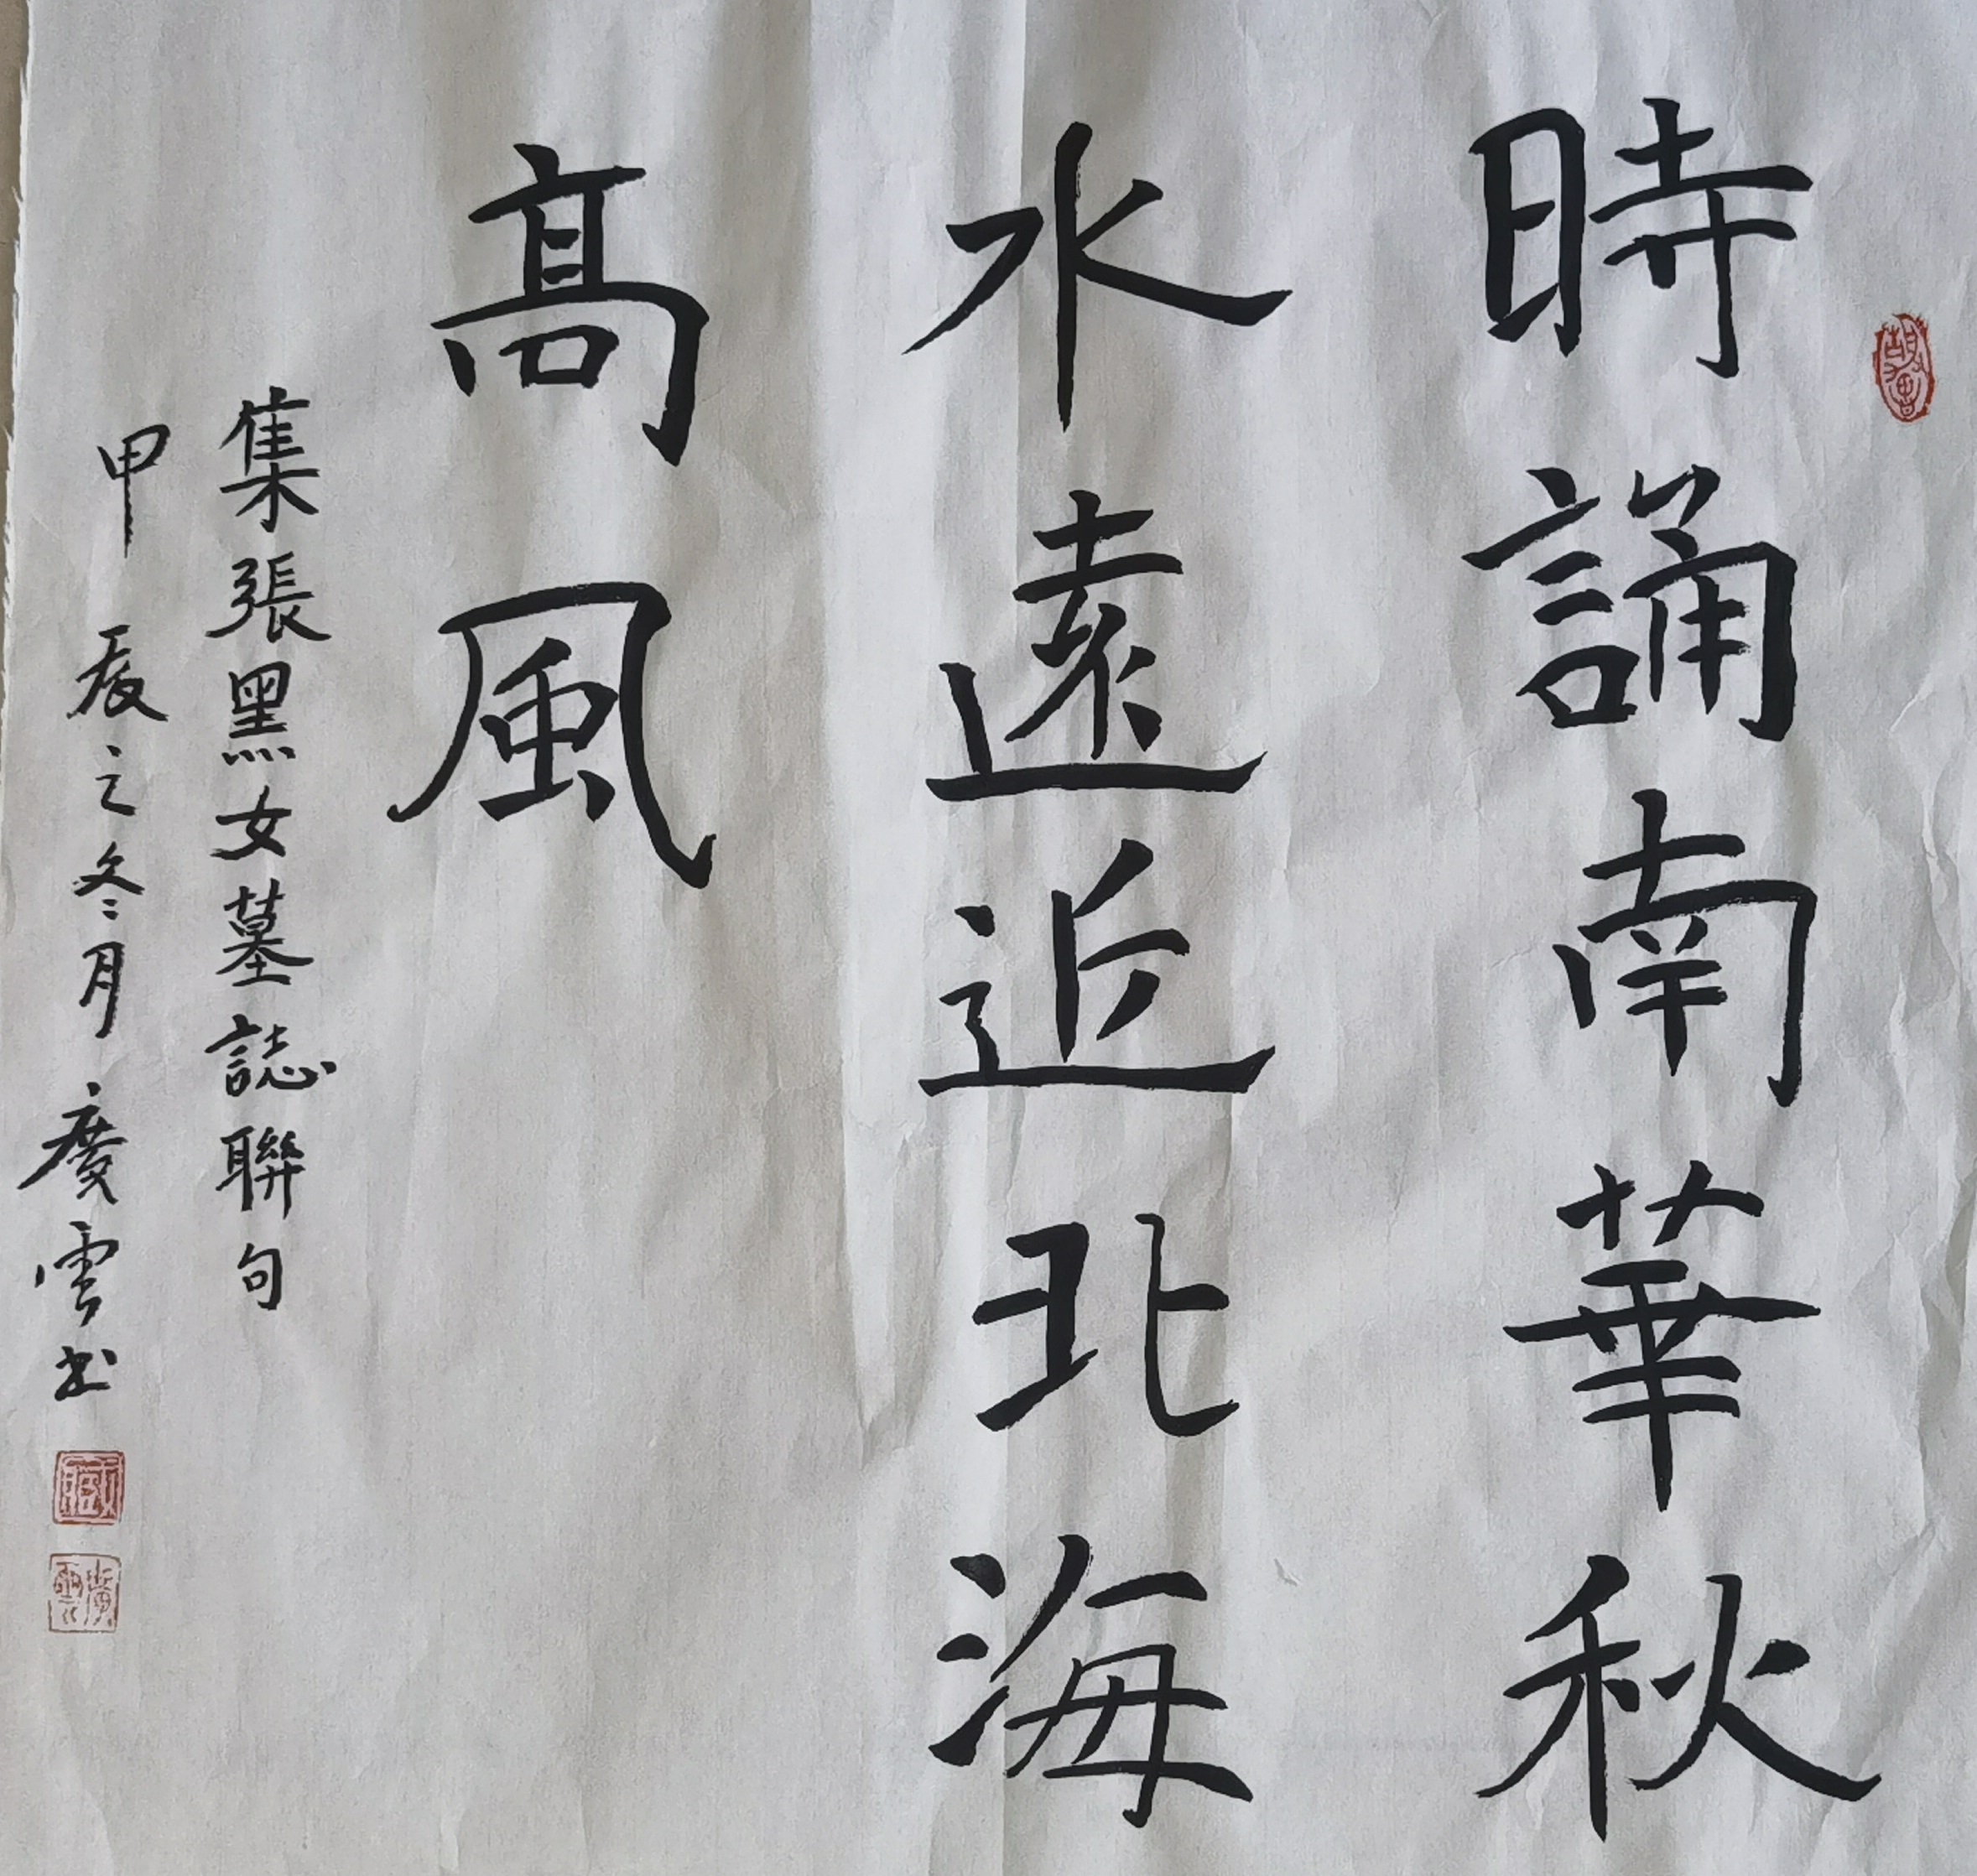 時誦南華秋
水遠近北海
高風
集張黑女墓誌聯句
甲辰之冬月慶雲书